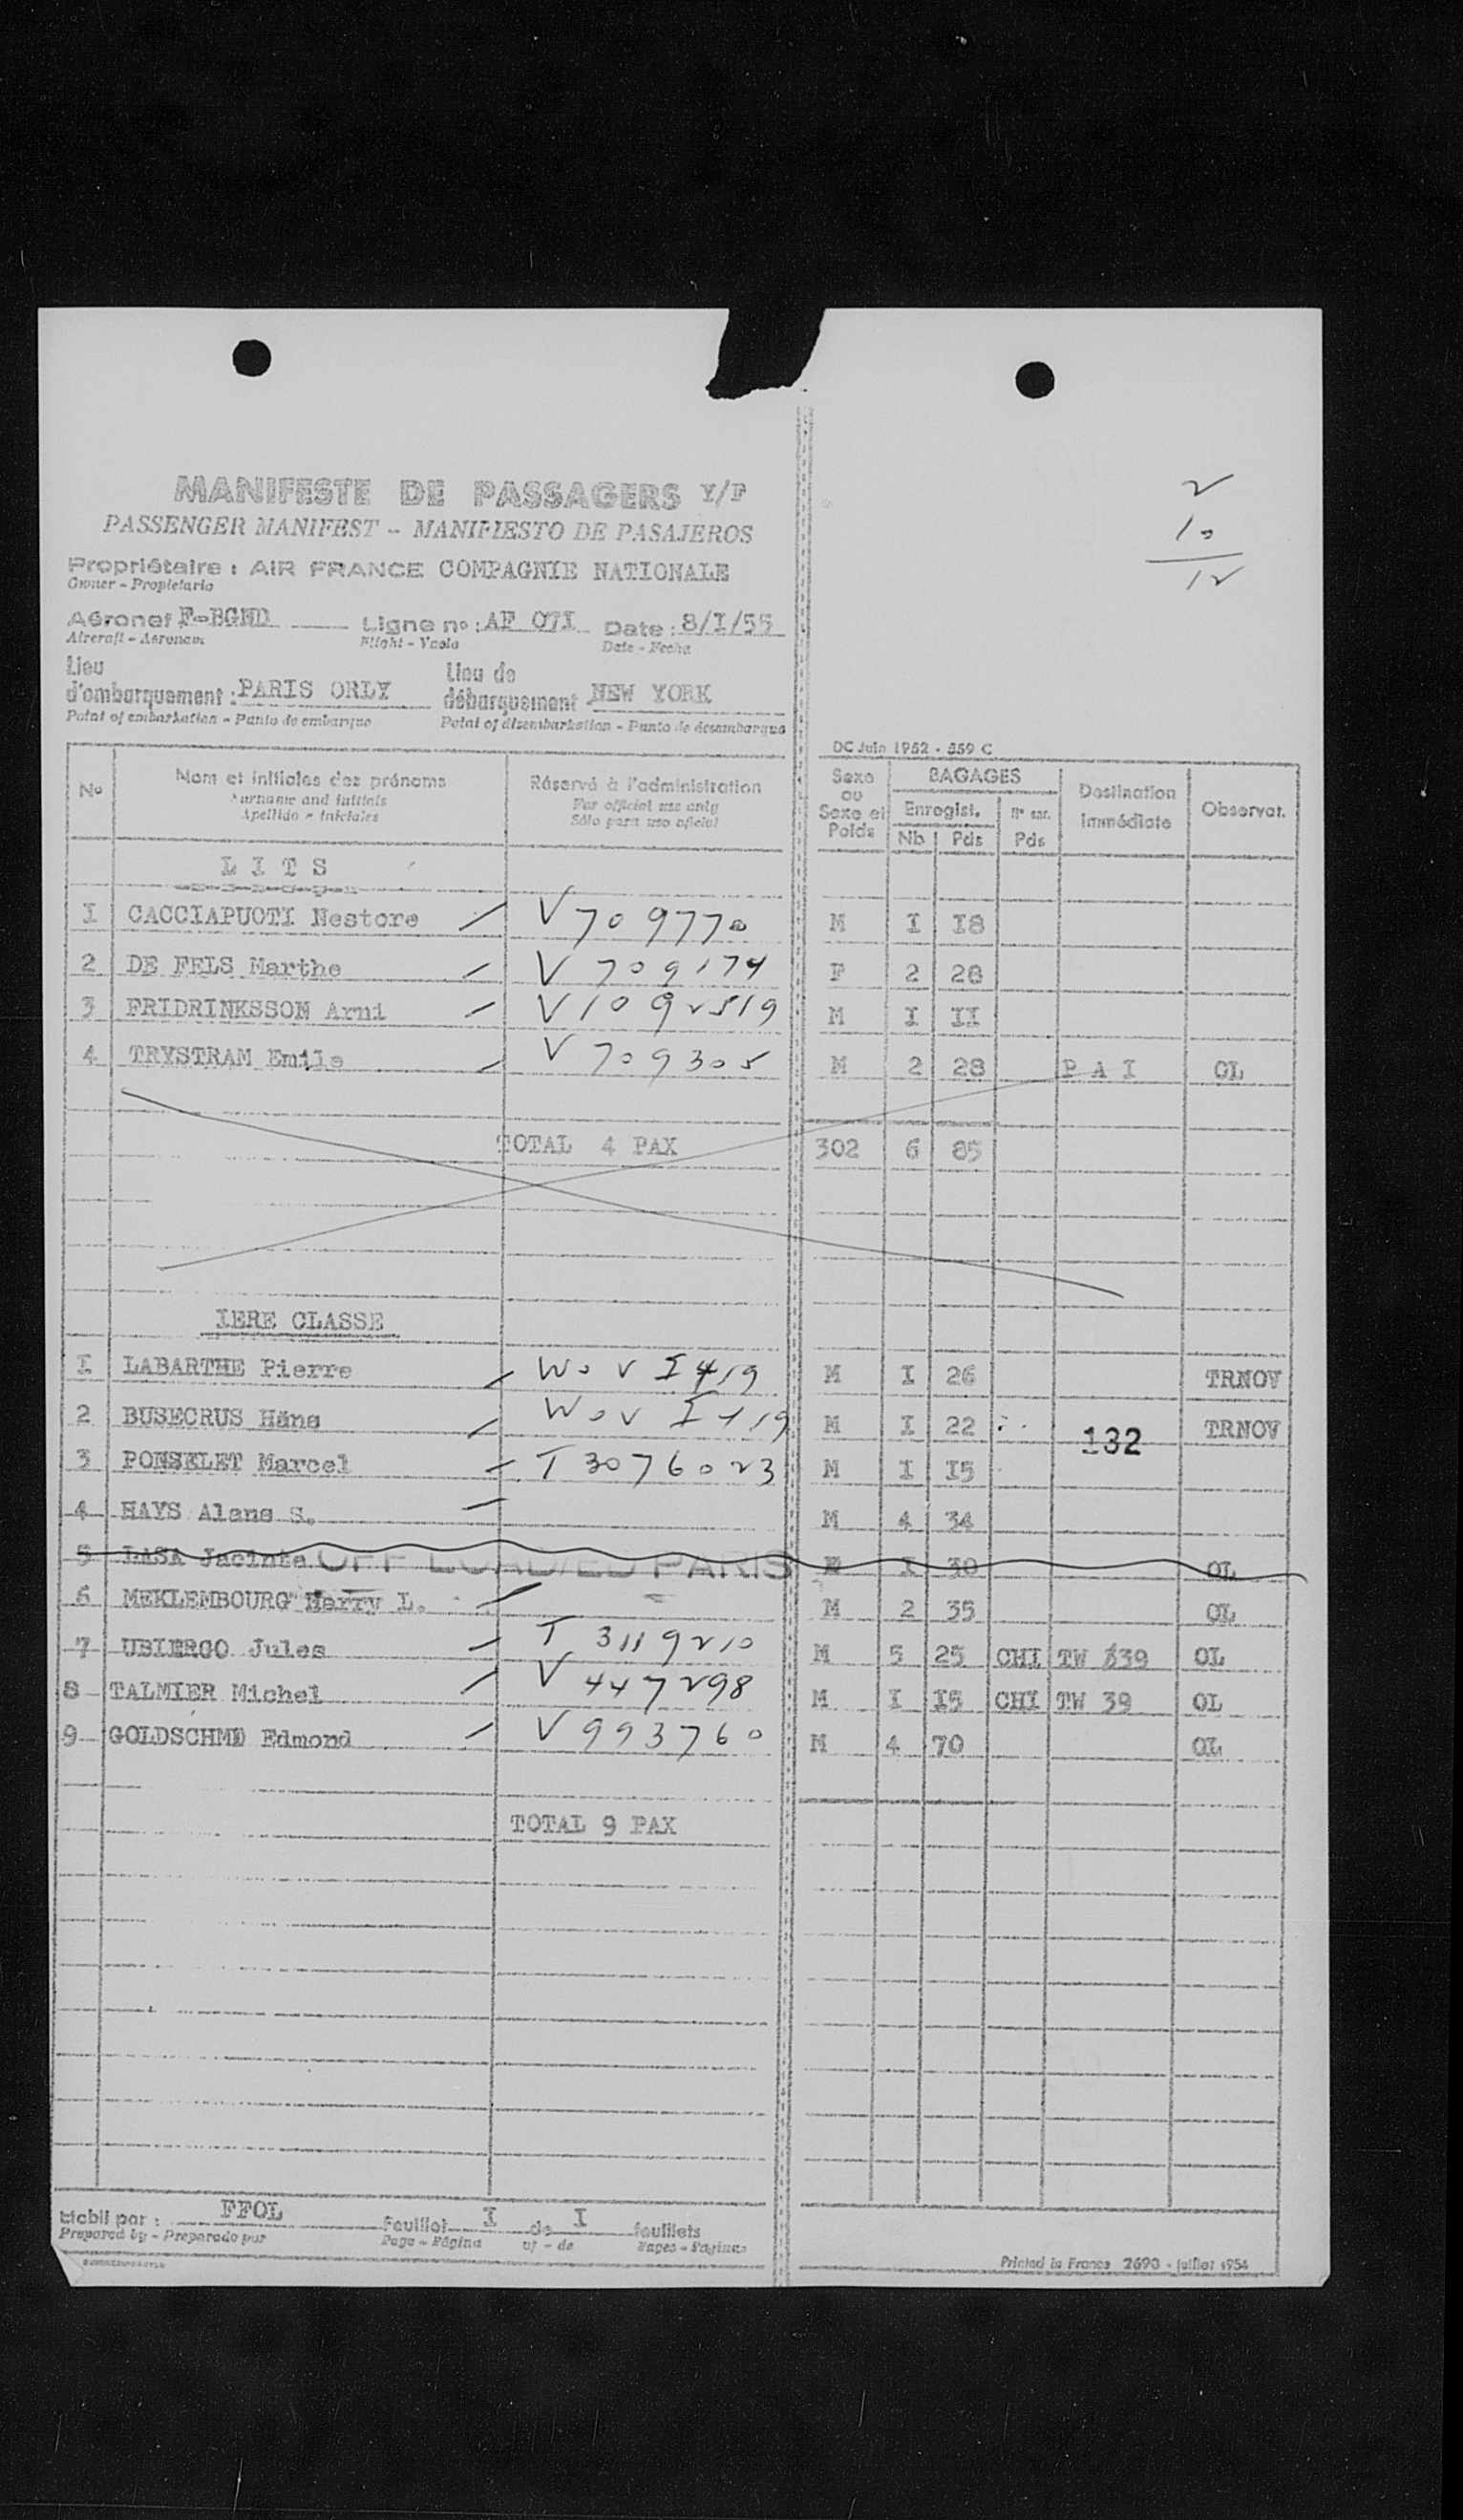 2
10
12
MANIFESTE DE PASSAGERS Y/F
PASSENGER MANIFEST - MANIFIESTO DE PASAJEROS
Propriétaire : AIR FRANCE COMPAGNIE NATIONALE
Owner - Propietario
Aéronef F-BGND Ligne no : AF 07I Date : 8/I/55
Aircraft - Aeronave Flight - Vuelo Date - Fecha
Lieu d'embarquement : PARIS ORLY Lieu de débarquement NEW YORK
Point of embarkation - Punto de embarque Point of disembarkation - Punto de desembarque
DC Juin 1952 - 859 C
No Nom et initiales des prénoms Réservé à l'administration Sexe ou Sexe et Poids BAGAGES Destination immédiate Observat.
Surname and initials For official use only Enregist. Nº enr.
Apellido - iniciales Sólo para uso oficial Nb Pds Pds
L I T S
I CACCIAPUOTI Nestore V 709770 M I I8
2 DE FELS Marthe V 709174 F 2 28
3 FRIDRINKSSON Arni V 1092519 M I II
4 TRYSTRAM Emile V 709305 M 2 28 P A I OL
TOTAL 4 PAX 302 6 85
IERE CLASSE
I LABARTHE Pierre WOV I419 M I 26 TRNOV
2 BUSECRUS Häns WOV I419 M I 22 TRNOV
132
3 PONSELET Marcel T 3076023 M I I5
4 HAYS Alans S. M 4 34
5 LASA Jacinta OFF LOADED PARIS I 30 OL
6 MEKLEMBOURG Harry L. M 2 35 OL
7 UBIERGO Jules T 3119210 M 5 25 CHI TW 39 OL
8 TALMIER Michel V 447298 M I I5 CHI TW 39 OL
9 GOLDSCHMD Edmond V 993760 M 4 70 OL
TOTAL 9 PAX
Etabli par : FFOL Feuillet I de I feuillets
Prepared by - Preparado por Page - Página of - de Pages - Páginas
Printed in France 2690 - juillet 1954